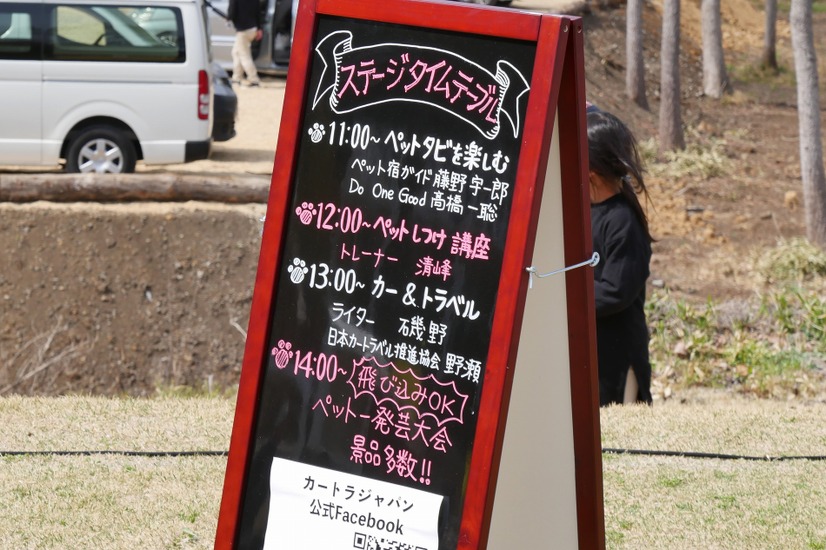 ステージタイムテーブル
11:00~ペットタビを楽しむ
ペット宿ガイド 藤野 宇一郎
Do One Good 高橋 一聡
12:00~ペットしつけ 講座
トレーナー 清峰
13:00~ カー&トラベル
ライター 磯野
日本カートラベル推進協会 野瀬
14:00~ 飛び込みOK
ペット一発芸大会
景品多数!!
カートラジャパン
公式Facebook